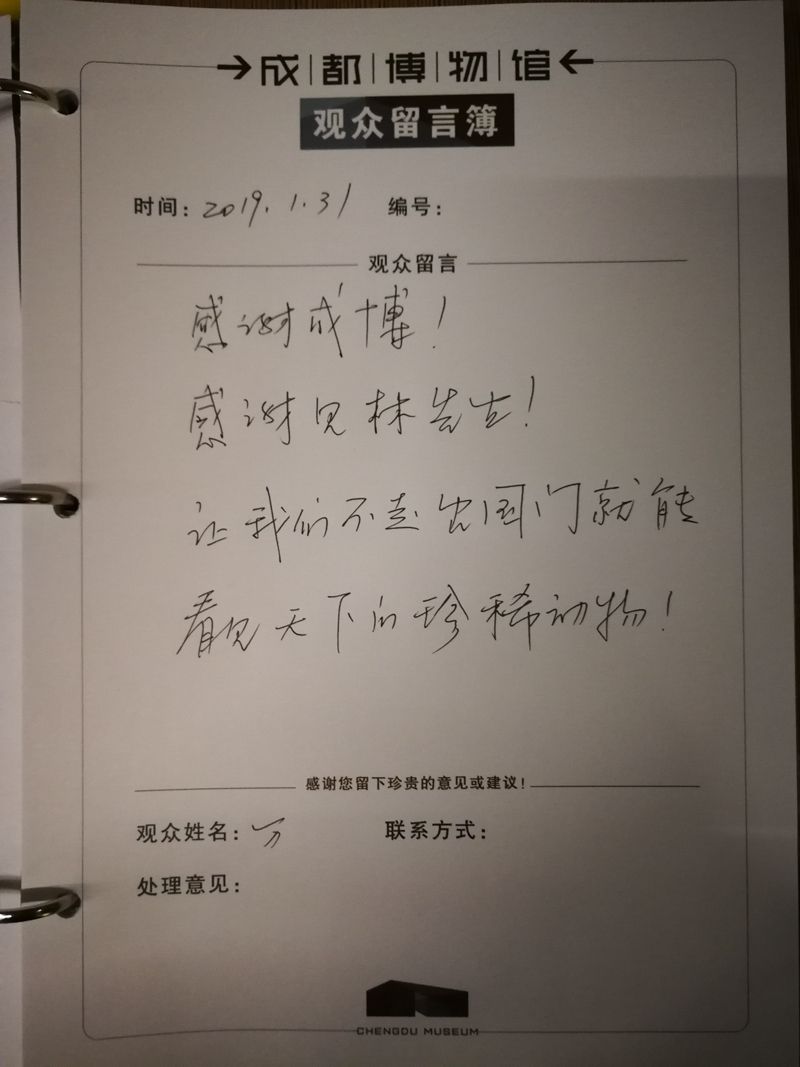 成都博物馆
观众留言簿
时间：2019.1.31 编号：
观众留言
感谢成博！
感谢贝林先生！
让我们不走出国门就能
看见天下的珍稀动物！
感谢您留下珍贵的意见或建议！
观众姓名： 联系方式：
处理意见：
CHENGDU MUSEUM